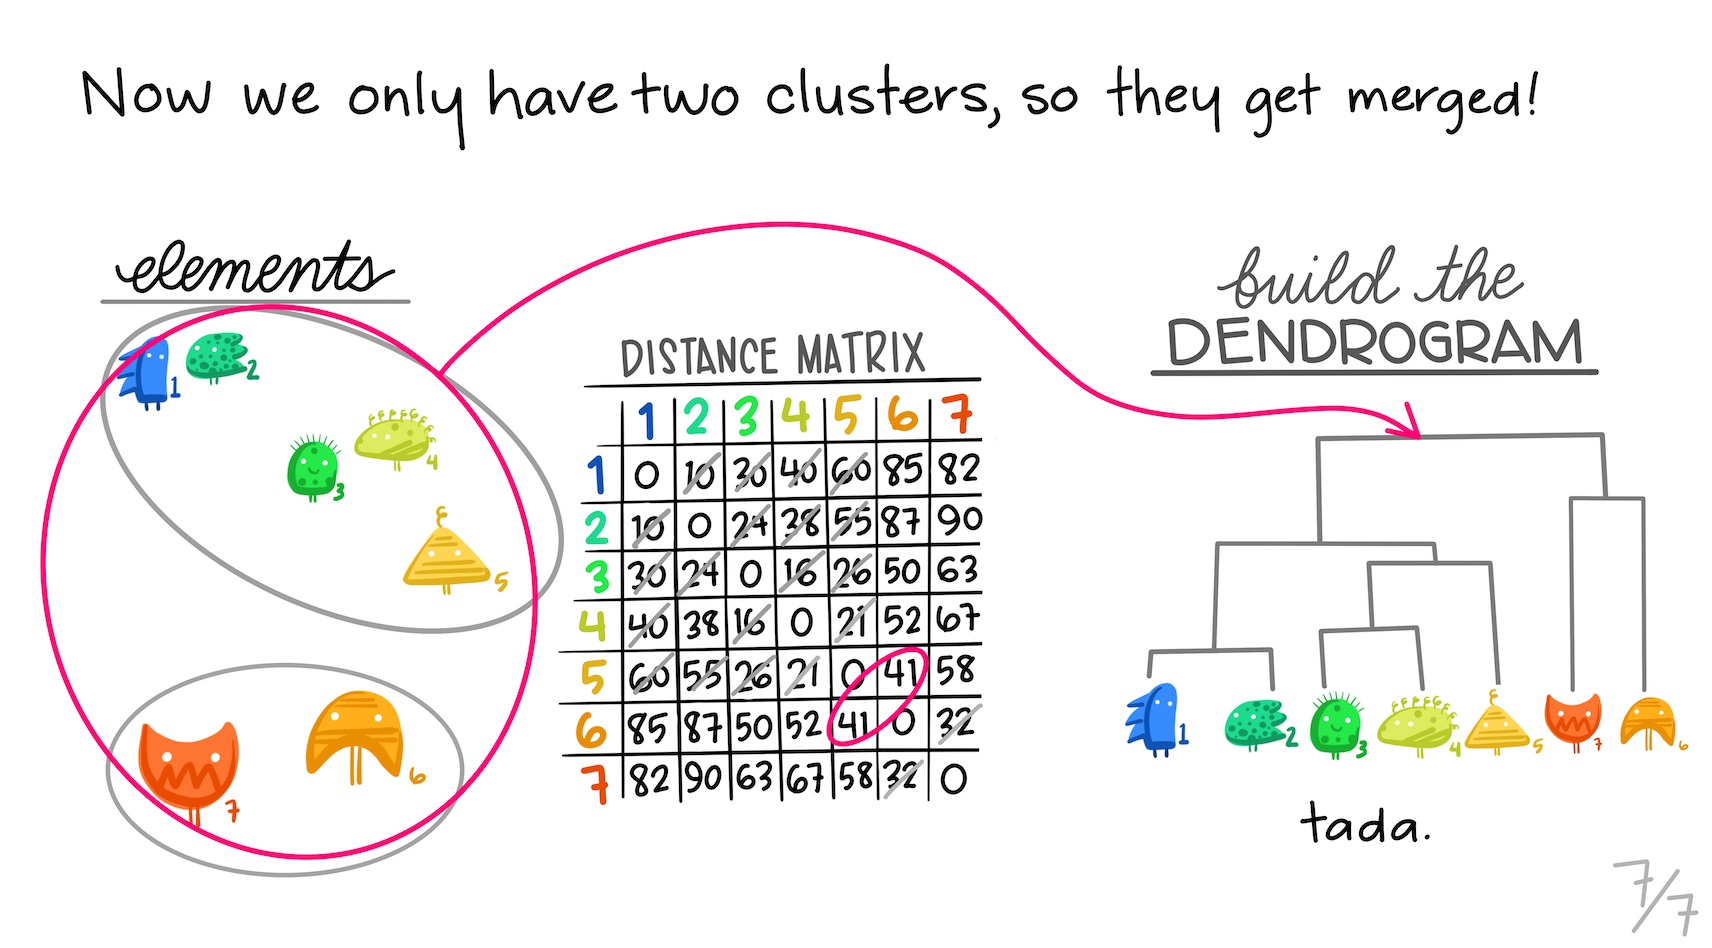 Now we only have two clusters, so they get merged!
elements
1
2
3
4
5
6
7
DISTANCE MATRIX
1 2 3 4 5 6 7
1 0 10 30 40 60 85 82
2 10 0 24 38 55 87 90
3 30 24 0 16 26 50 63
4 40 38 16 0 21 52 67
5 60 55 26 21 0 41 58
6 85 87 50 52 41 0 32
7 82 90 63 67 58 32 0
build the
DENDROGRAM
1 2 3 4 5 7 6
tada.
7/7